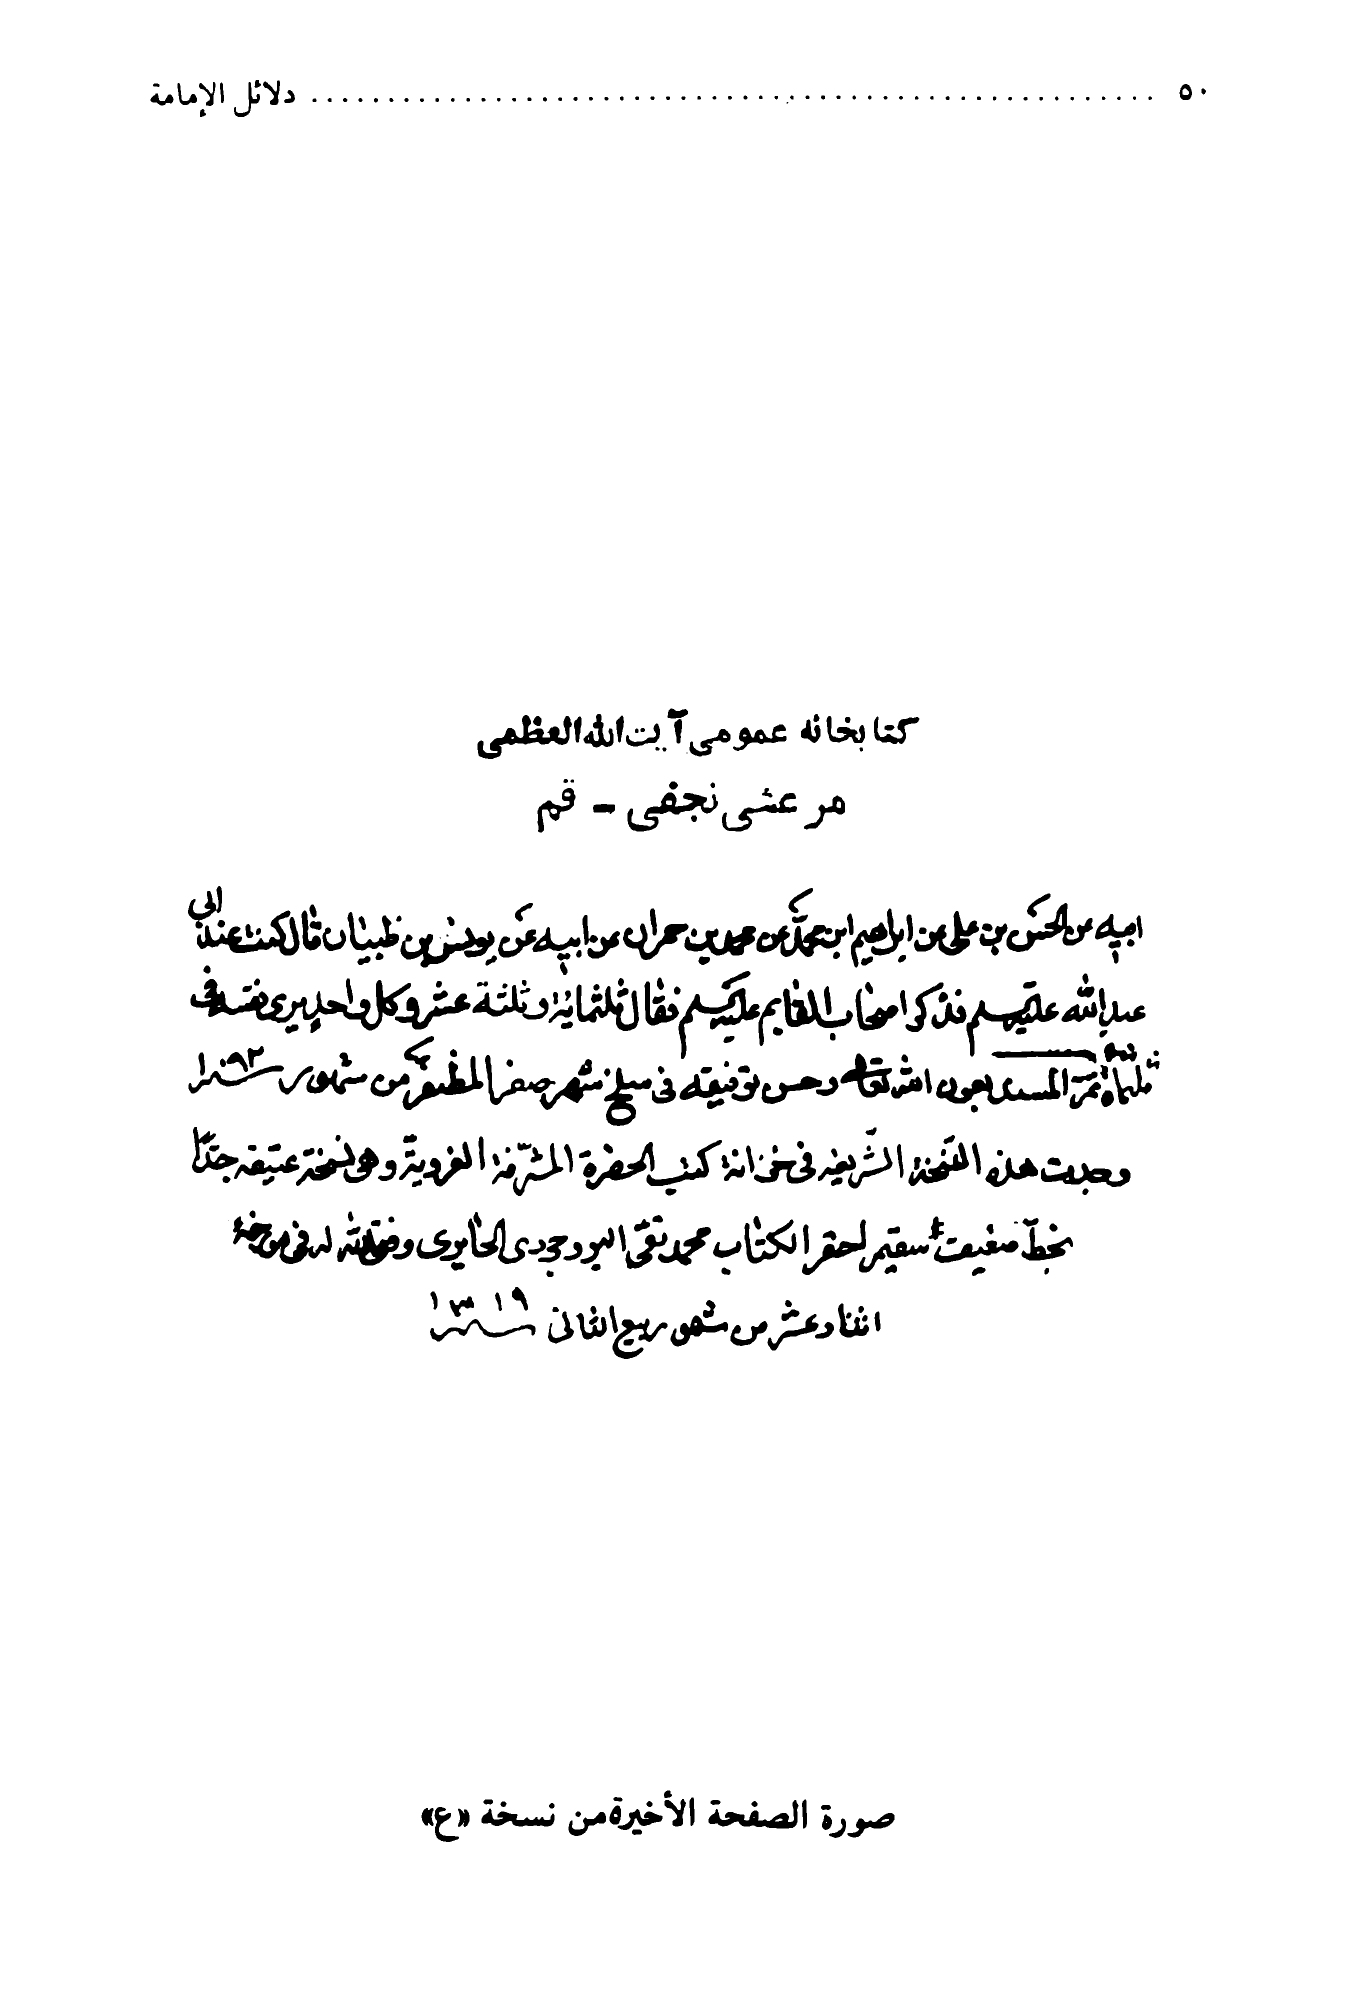 ٥٠ ........................................................ دلائل الإمامة
كتابخانه عمومى آيت الله العظمى
مرعشى نجفى - قم
ابيه عن الحسن بن على عن ابراهيم ابن محمد عن محمد بن حمران عن ابيه عن يونس بن ظبيان قال كنت عند ابى
عبد الله عليهم فذكر اصحاب القايم عليهم فقال ثلثمائة وثلثة عشر وكل واحد يرى نفسه فى
ثلثمائة تم المسند بعون الله تعالى وحسن توفيقه فى سلخ شهر صفر المظفر من شهور سنة ١٠٩٢
وجدت هذه النسخة الشريفة فى خزانة كتب الحضرة المشرفة الغروية وهى نسخة عتيقة جدّا
بخطّ ضعيف سقيم احقر الكتاب محمد تقى البروجردى الحايرى وفقه الله له فى
اثنا وعشر من شهور ربيع الثانى ١٣١٩
صورة الصفحة الأخيرة من نسخة «ع»